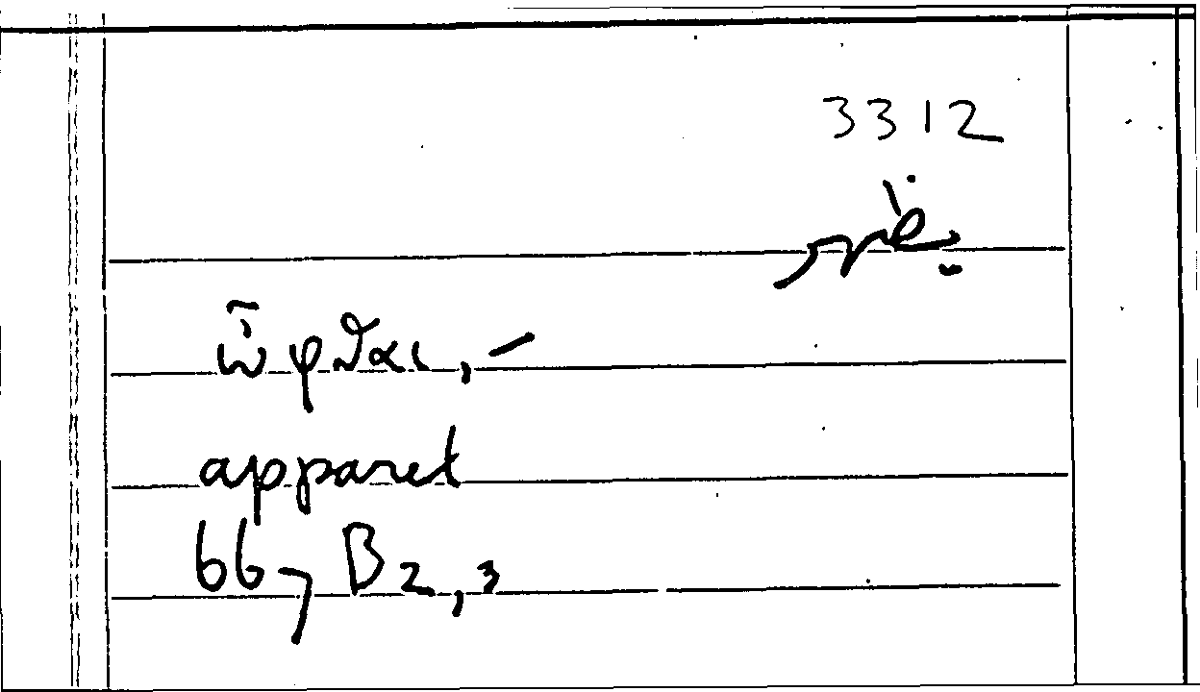 3312
يظهر
ὦφθαι, –
apparet
667 B 2, 3